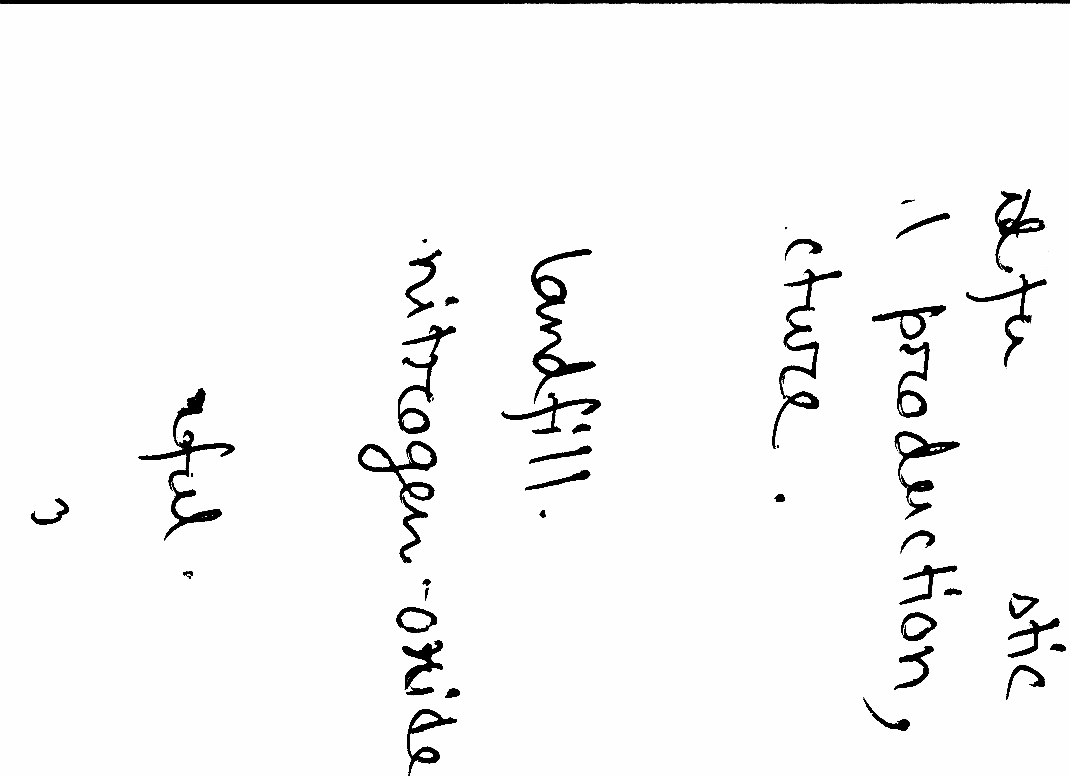 stic
production,
cture.
landfill.
nitrogen-oxide
eful.